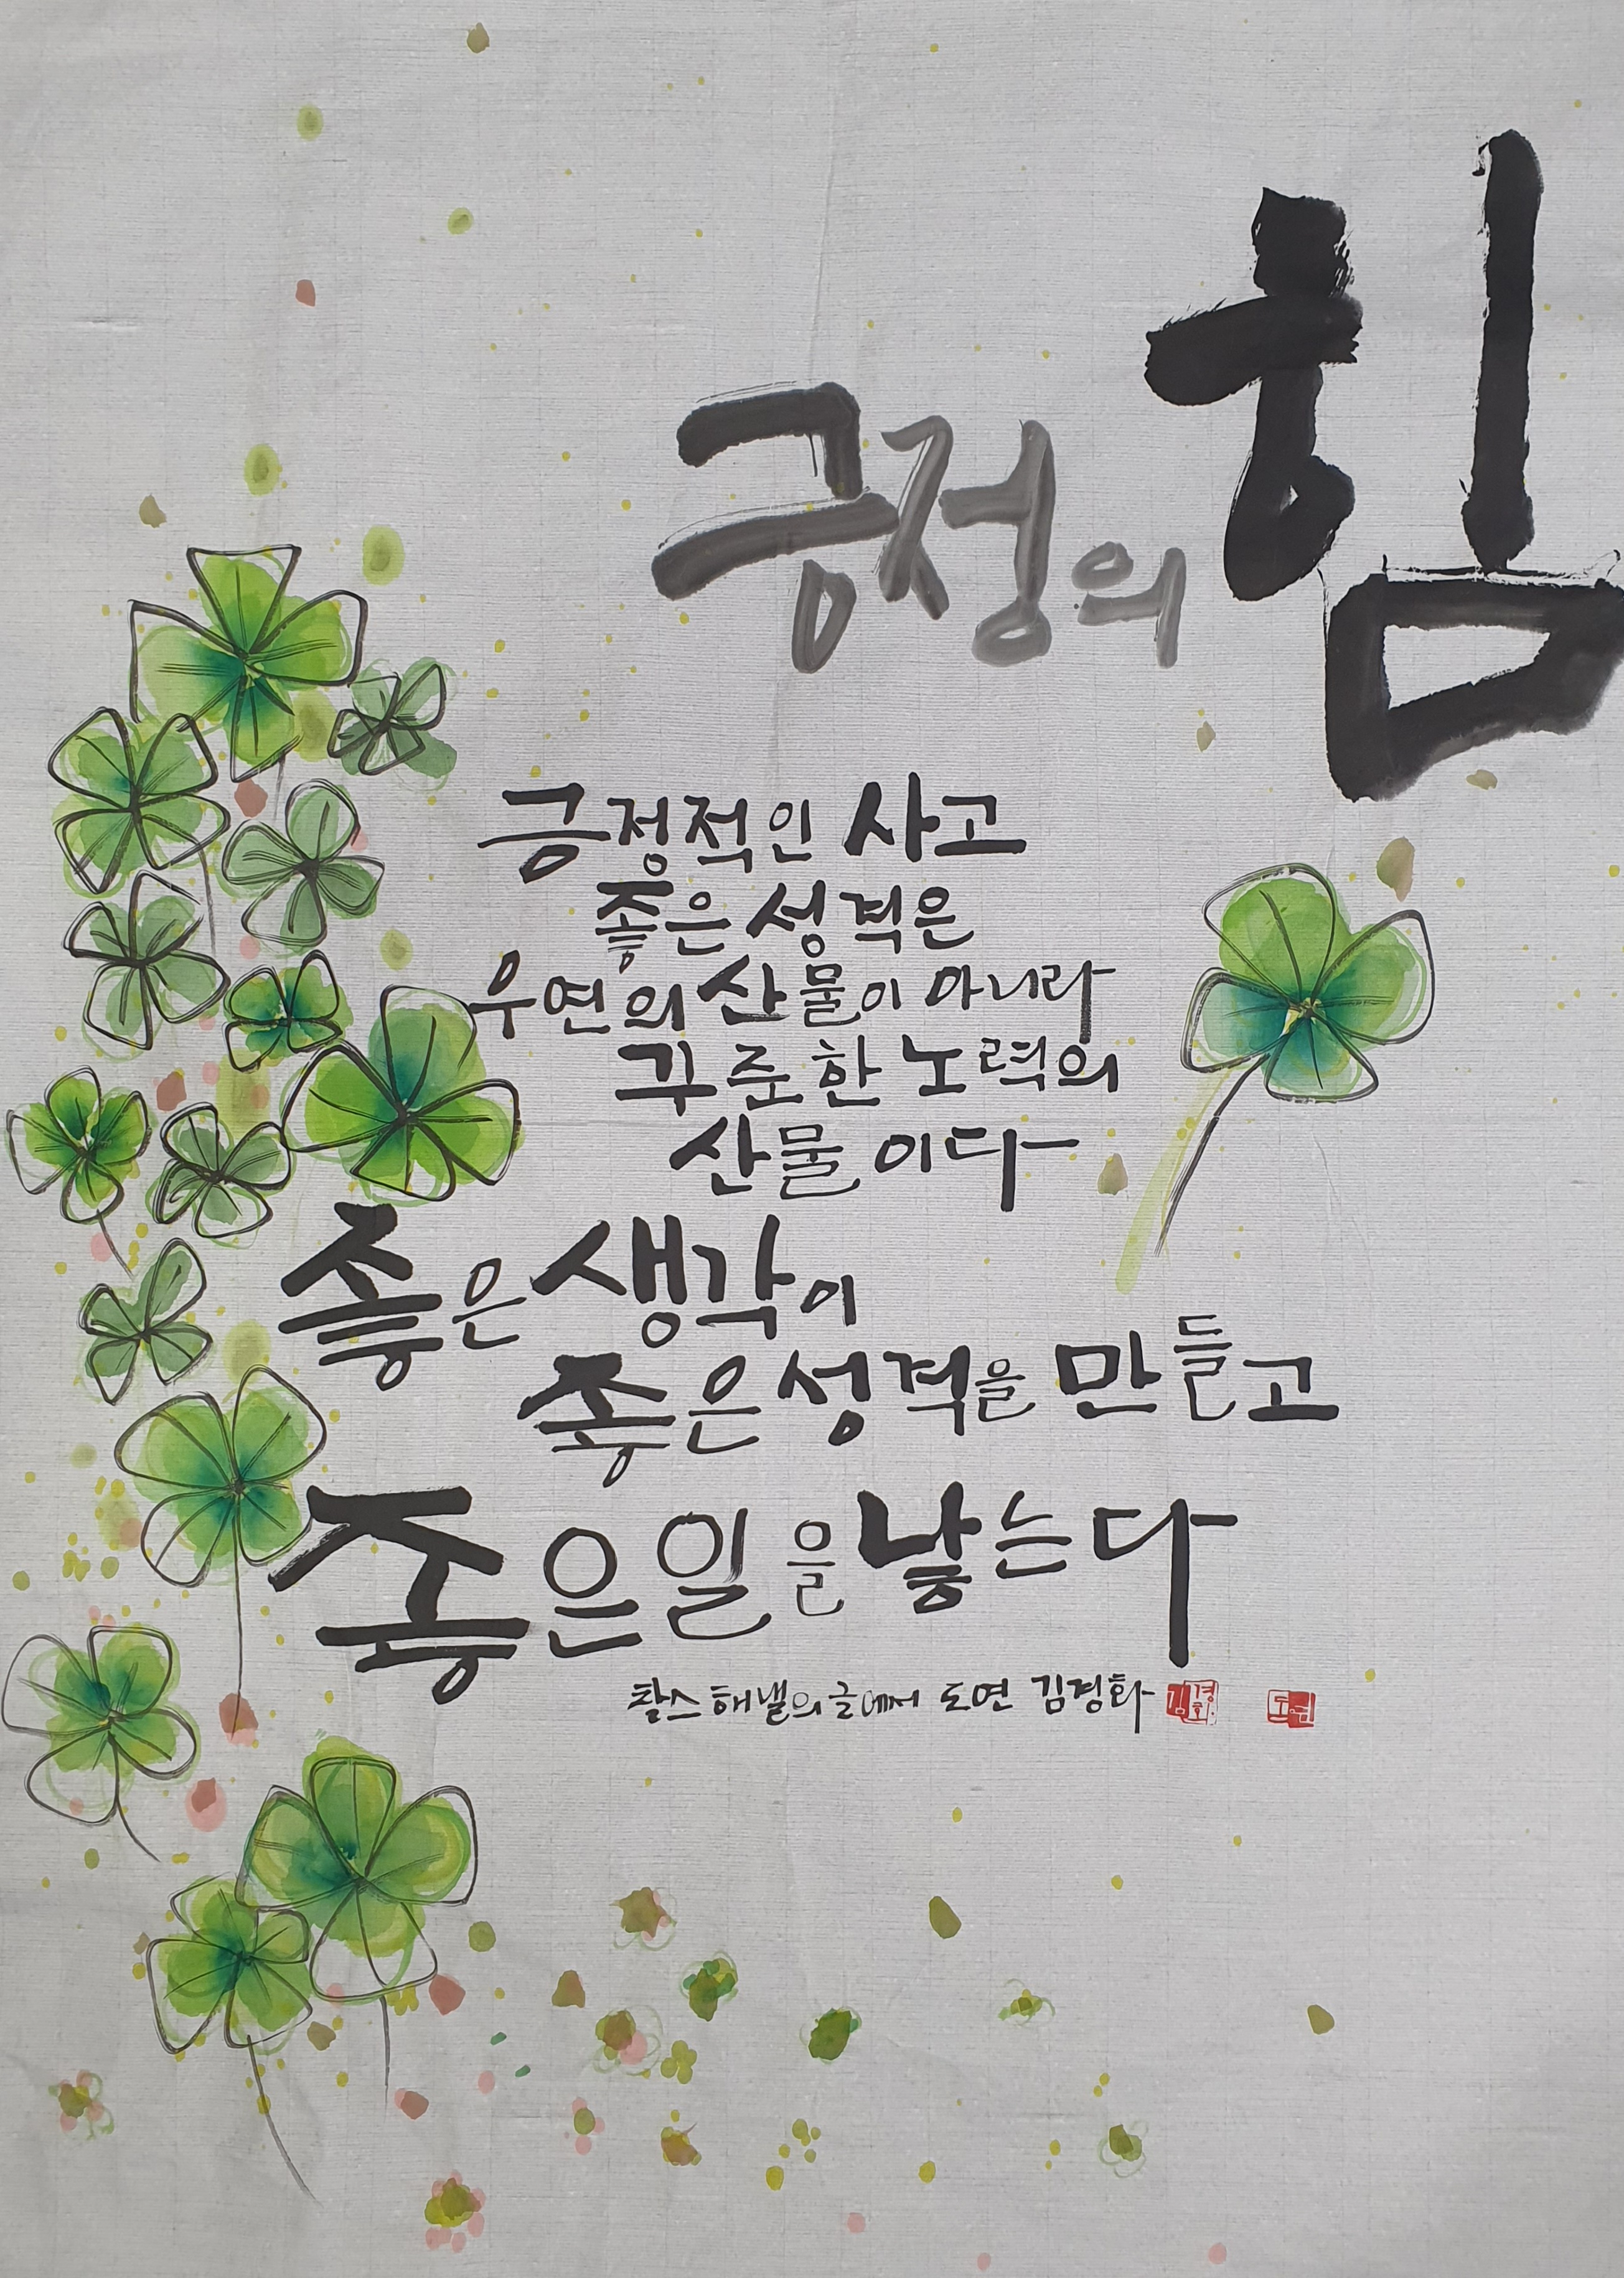 긍정의 힘
긍정적인 사고
좋은 성격은
우연의 산물이 아니라
꾸준한 노력의
산물이다
좋은 생각이
좋은 성격을 만들고
좋은 일을 낳는다
찰스 해낼의 글에서 도연 김경화
김경화
도연